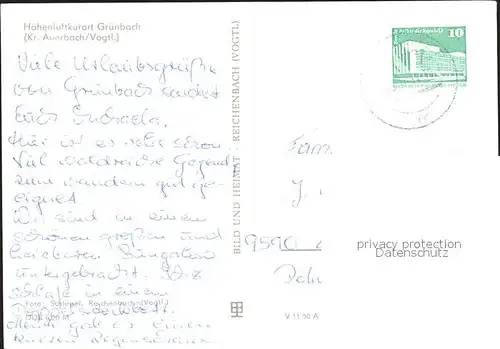 Höhenluftkurort Grünbach
(Kr. Auerbach/Vogtl.)
Viele Urlaubsgrüße
von Grünbach sendet
Euch
Hier ist es sehr schön.
Viel waldreiche Gegend
zum wandern gut ge-
eignet
Wir sind in einem
schönen großen und
Bungalow
untergebracht. Ich
schlafe in einem
Foto: Schlegel, Reichenbach (Vogtl.)
Heute gab es einen
kurzen Regenschauer
BILD UND HEIMAT · REICHENBACH (VOGTL)
V 11 50 A
10
Fam.
9590
privacy protection
Datenschutz